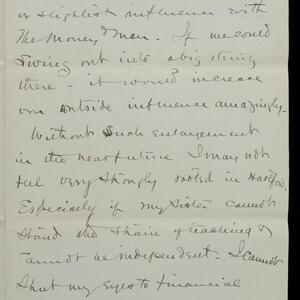 or slightest influence with
the Money'd men. If we could
swing out into a big thing
there - it would increase
our outside influence amazingly -
Without such enlargement
in the near future I may not
feel very strongly rooted in Hartford.
Especially if my sister cannot
stand the strain of teaching &
cannot be independent. I cannot
shut my eyes to financial